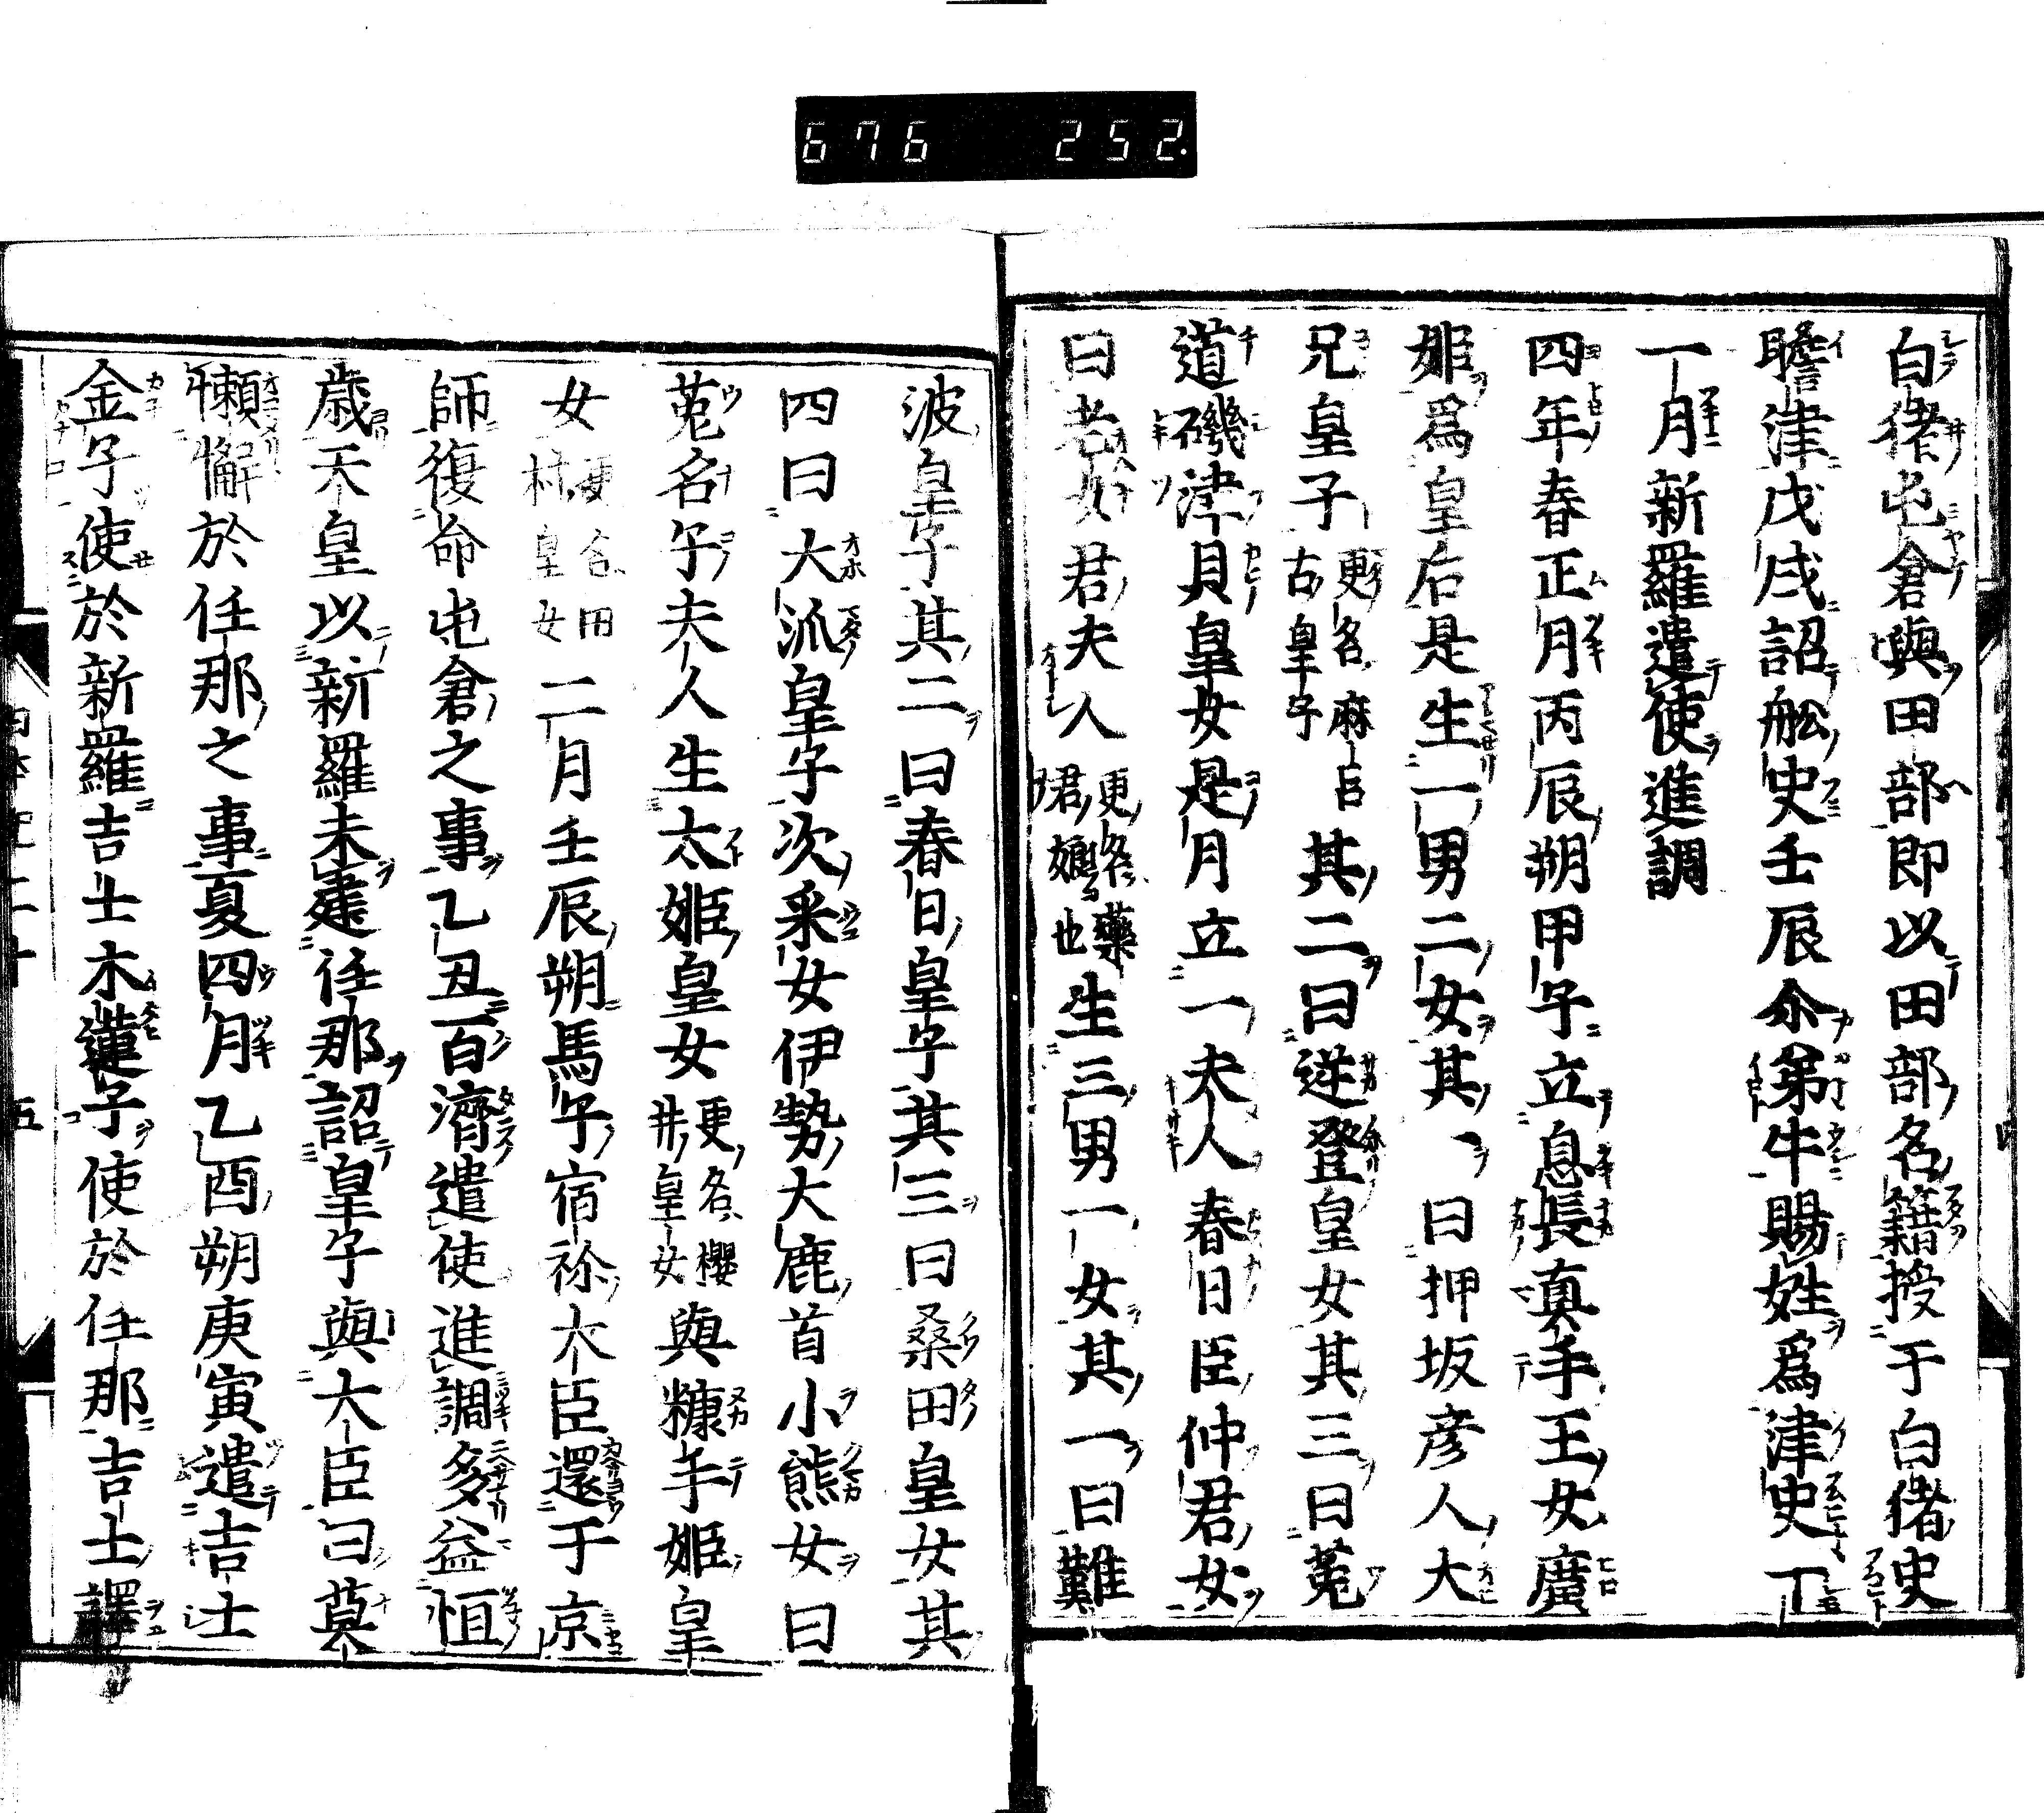 676 252.
白猪屯倉與田部即以田部名籍授于白猪史
膽津戊戌詔舩史壬辰尓弟牛賜姓爲津史丁
一月新羅遣使進調
四年春正月丙辰朔甲子立息長真手王女廣
姫爲皇后是生一男二女其一曰押坂彦人大
兄皇子更名麻呂古皇子其二曰逆登皇女其三曰菟
道磯津貝皇女是月立一夫人春日臣仲君女
曰老女君夫人更名藥君娘也生三男一女其一曰難
波皇子其二曰春日皇子其三曰桑田皇女其
四曰大派皇子次采女伊勢大鹿首小熊女曰
菟名子夫人生太姫皇女更名櫻井皇女與糠手姫皇
女更名田村皇女二月壬辰朔馬子宿祢大臣還于京
師復命屯倉之事乙丑百濟遣使進調多益恒
歳天皇以新羅未建任那詔皇子與大臣曰莫
懶懈於任那之事夏四月乙酉朔庚寅遣吉士
金子使於新羅吉士木蓮子使於任那吉士譯
日本紀二十 五